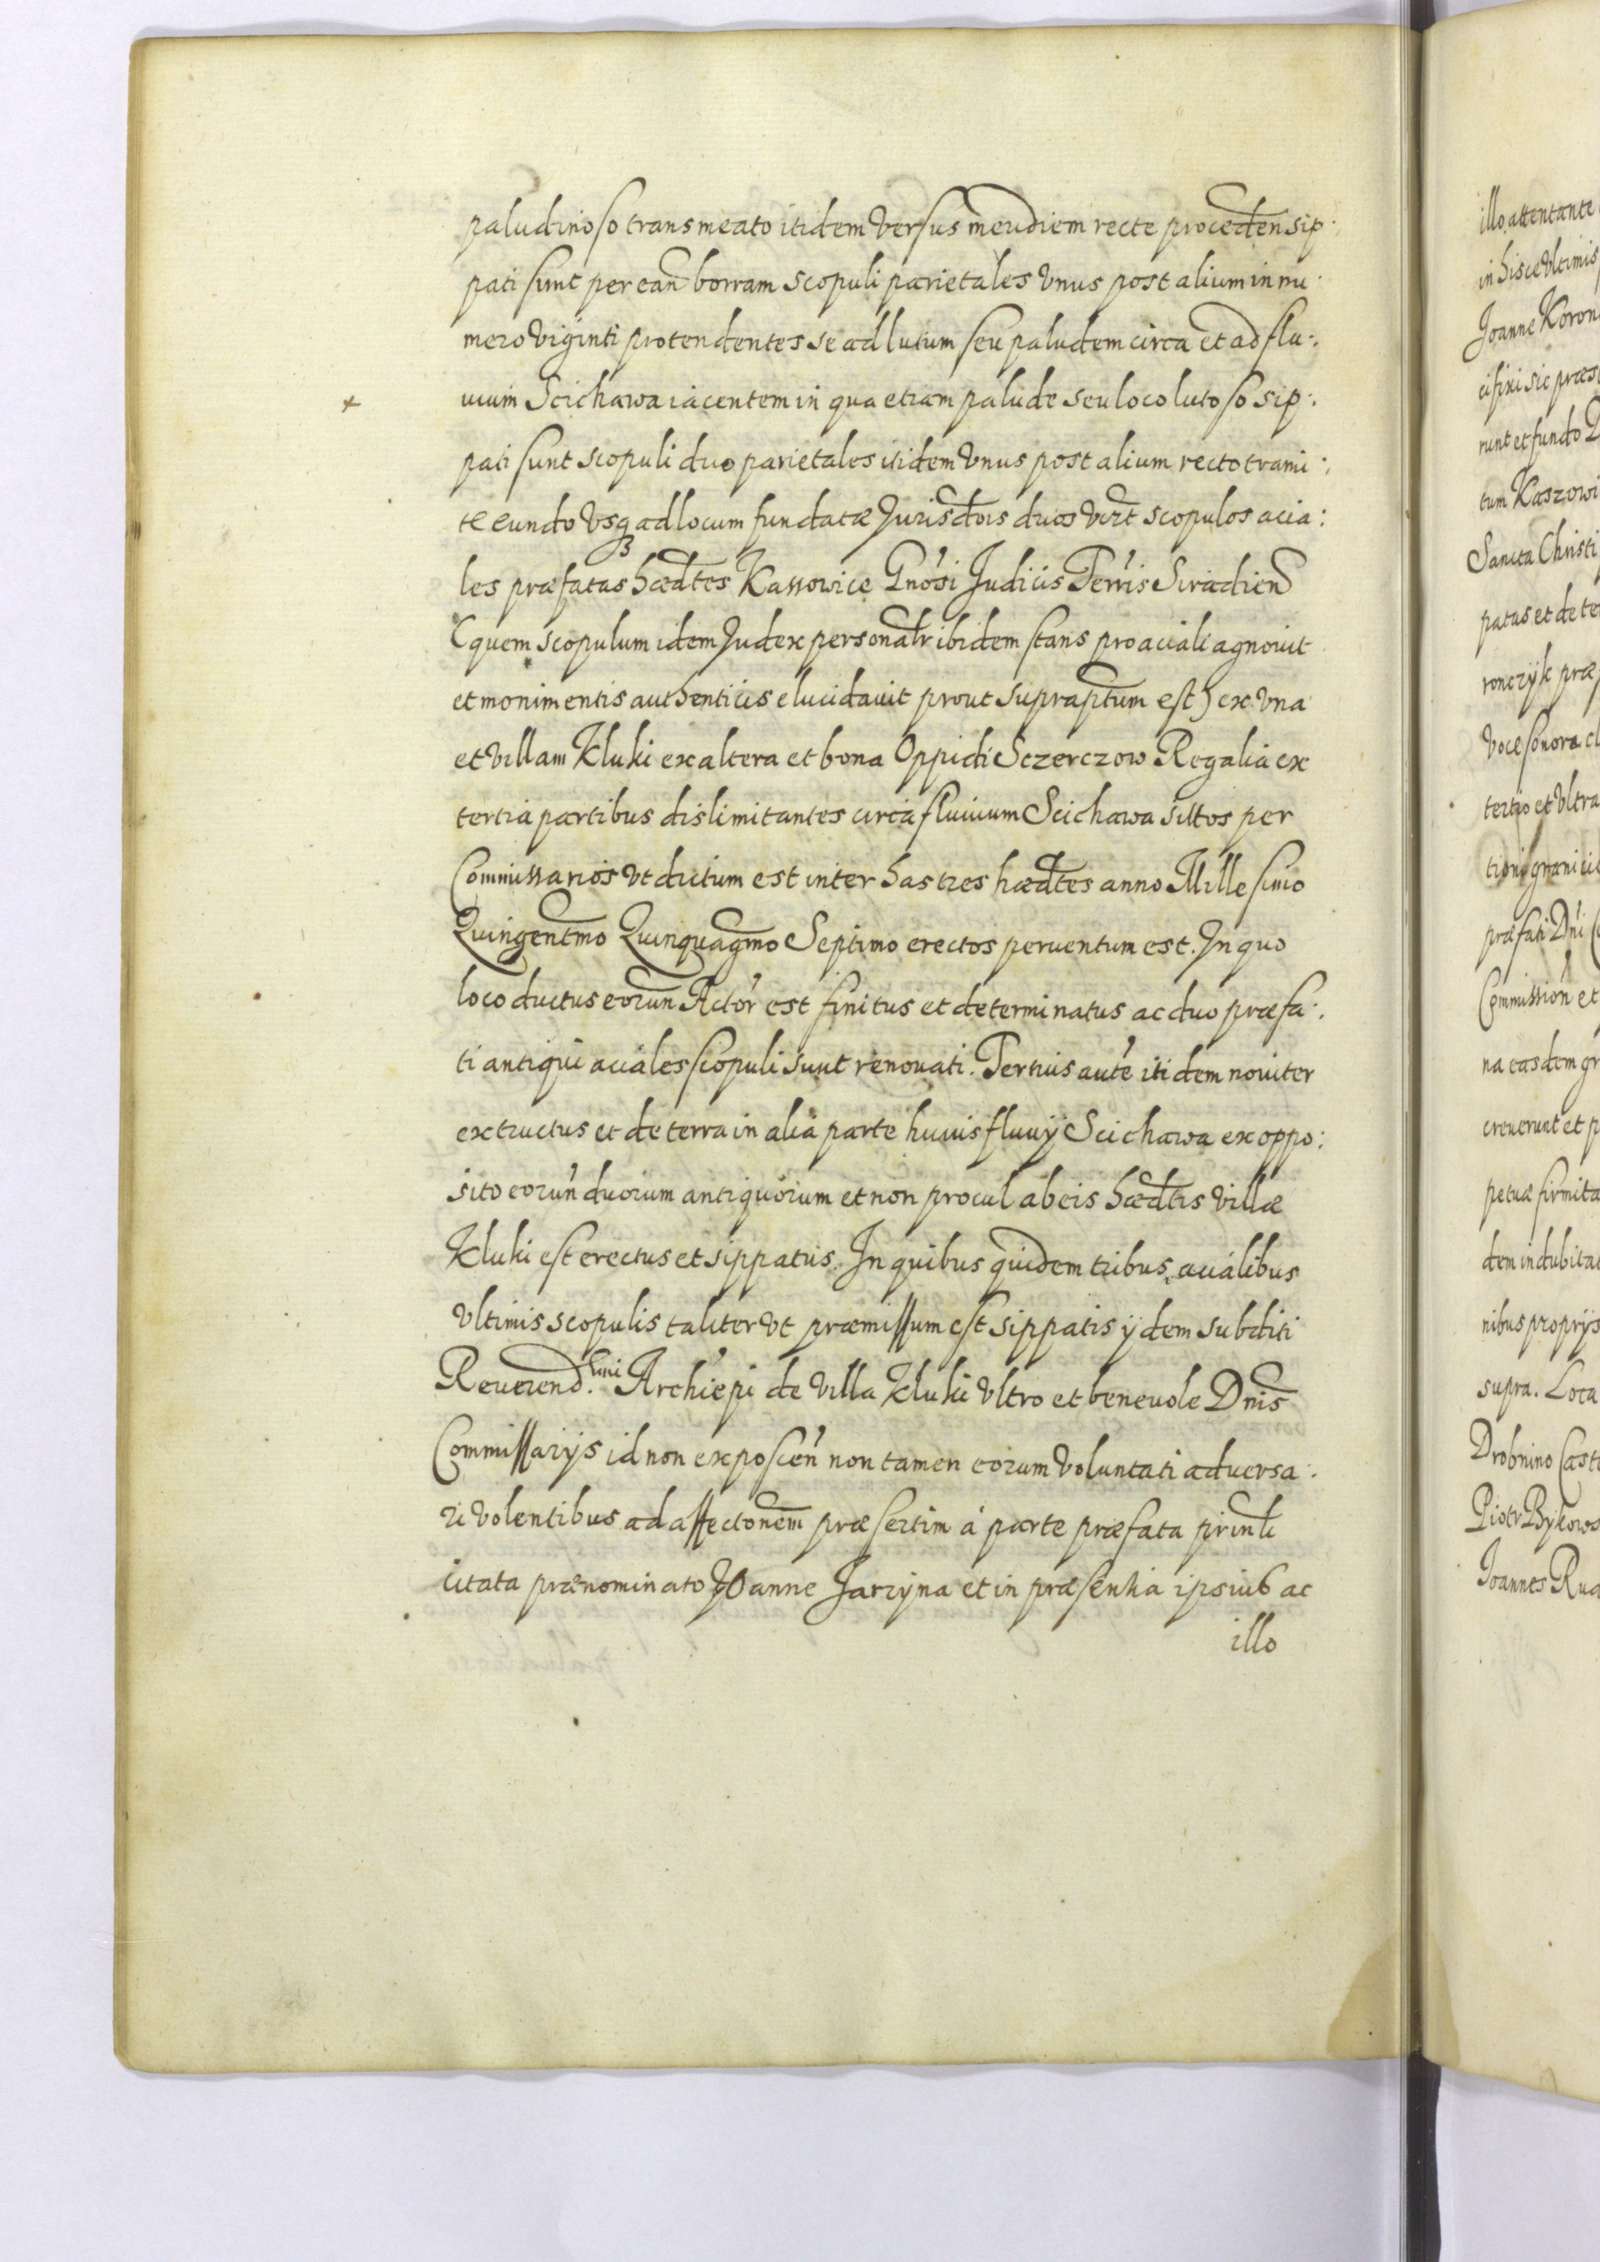 paludinoso transmeato itidem versus meridiem recte proceden sip:
pati sunt per ean borram scopuli parietales vnus post alium in nu:
mero viginti protendentes se ad lutum seu paludem circa et ad flu:
uium Scichawa iacentem in qua etiam palude seu loco lutoso sip:
pati sunt scopuli duo parietales itidem vnus post alium recto trami:
te eundo vsq ad locum fundatæ Jurisdtois duos vizt scopulos acia:
les præfatas hædtes Kassowice Gnosi Judicis Terris Siradien
(quem scopulum idem Judex personalr ibidem stans pro aciali agnouit
et monimentis authenticis elucidauit prout supraptum est) ex vna
et villam Kluki ex altera et bona Oppidi Sczerczow Regalia ex
tertia partibus dislimitantes circa fluuium Scichawa sittos per
Commissarios vt dictum est inter has tres hædtes anno Millesimo
Quingentmo Quinquagmo Septimo erectos peruentum est. In quo
loco ductus eorun Actor est finitus et determinatus ac duo præfa:
ti antiqui aciales scopuli sunt renouati. Tertius aute itidem nouiter
extructus et de terra in alia parte huius fluuij Scichawa ex oppo:
sito eorun duorum antiquorum et non procul ab eis hædtis villæ
Kluki est erectus et sippatus. In quibus quidem tribus acialibus
vltimis scopulis taliter vt præmissum est sippatis ijdem subditi
Reuerend.simi Archiepi de villa Kluki vltro et beneuole Dnis
Commissarijs id non exposcen non tamen eorum voluntati aduersa:
ri volentibus ad affectonem præsertim a parte præfata
citata prænominato Joanne Jarzyna et in præsentia ipsius ac
illo
illo attentante
in hisce vltimis
Joanne Koron
cifixi sic præs
runt et fundo
tum Kaszowi
Sancta Christi
patas et de te
ronczyk præ
voce sonora cl
tertio et vltra
tioni granicie
præfati Dni
Commission et
na easdem gr
creuerunt et p
petuæ firmita
dem indubitat
nibus proprijs
supra. Loca
Drobnino Cast
Piotr Bykows
Joannes Rua